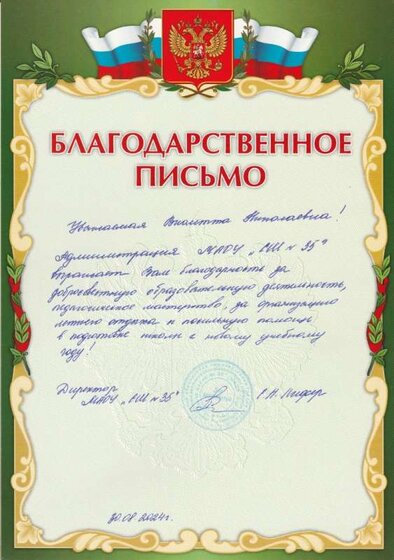 БЛАГОДАРСТВЕННОЕ
ПИСЬМО
Уважаемая Виолетта Николаевна!
Администрация МАОУ "СШ № 35"
выражает Вам благодарность за
добросовестную образовательную деятельность,
педагогическое мастерство, за организацию
летнего отдыха и посильную помощь
в подготовке школы к новому учебному
году!
Директор
МАОУ "СШ № 35"
30.08.2024г.